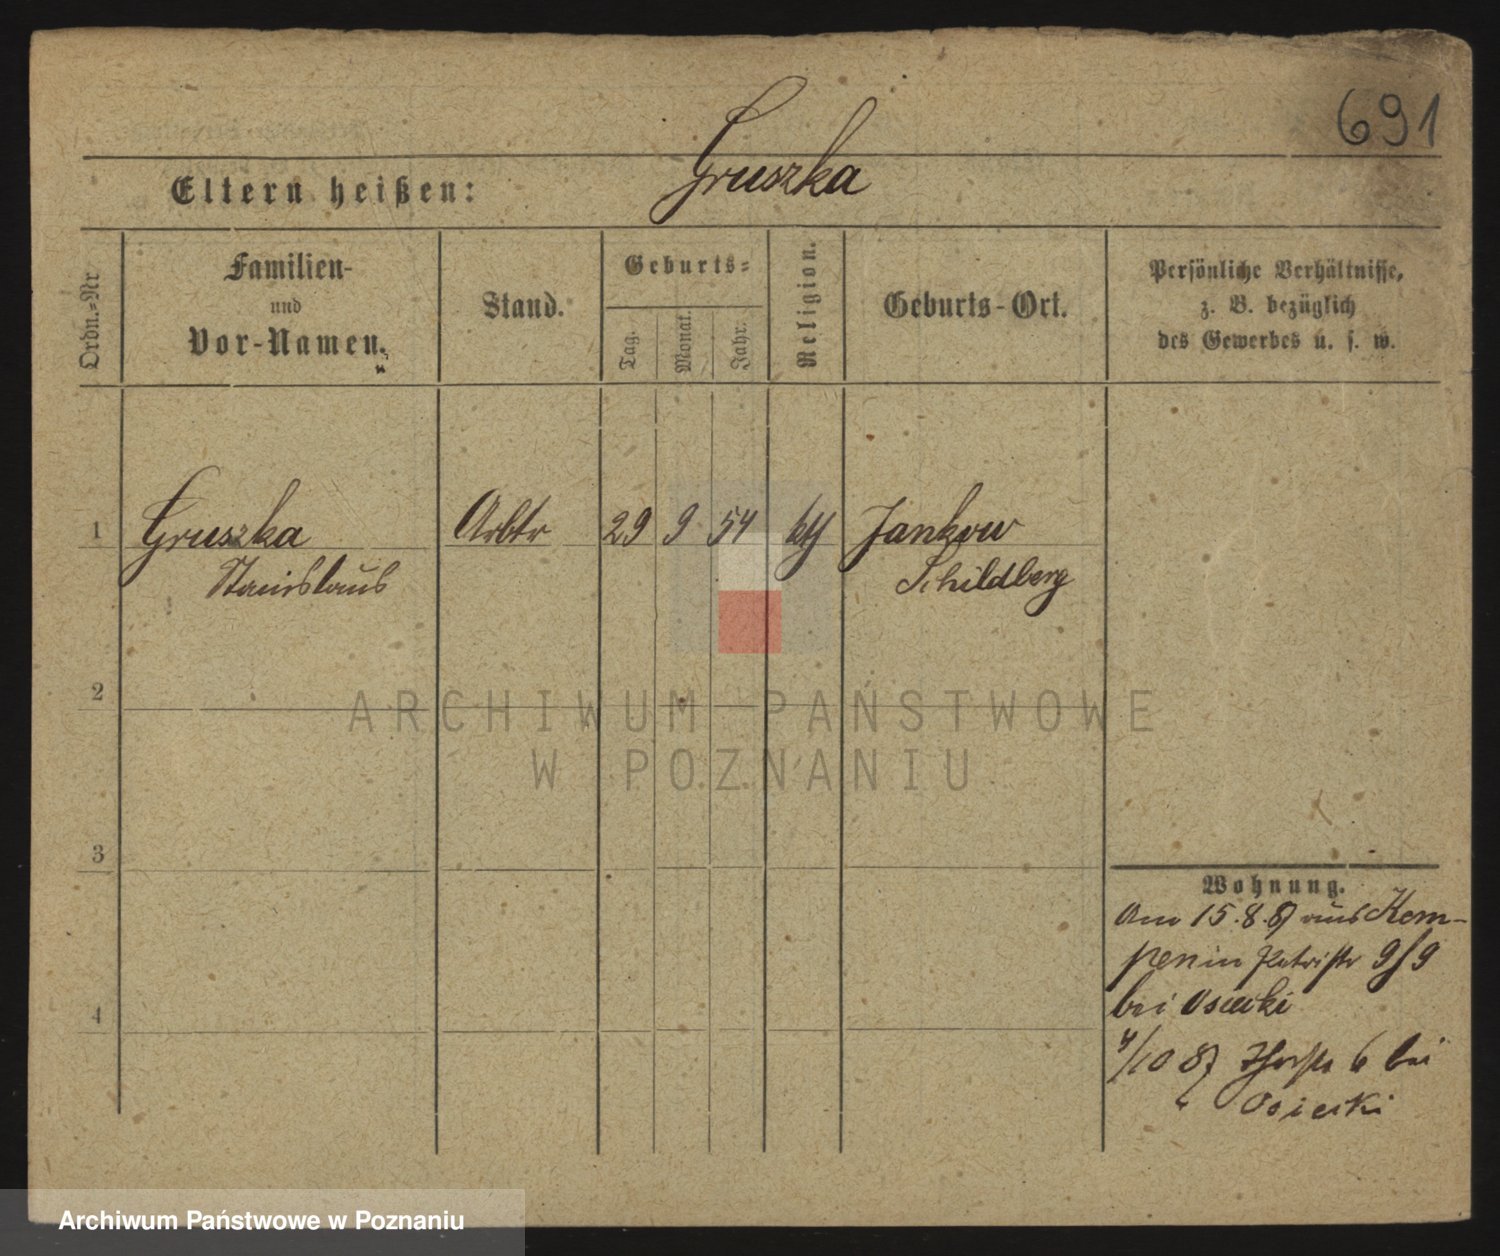 691
Gruszka
Eltern heißen:
Ordn.-Nr
Familien-
und
Vor-Namen.
Stand.
Geburts-
Tag.
Monat.
Jahr.
Religion.
Geburts-Ort.
Persönliche Verhältnisse,
z. B. bezüglich
des Gewerbes u. s. w.
1 Gruszka Arbtr 29 9 54 kth Jankow
Stanislaus Schildberg
2
3
4
ARCHIWUM PAŃSTWOWE
W POZNANIU
Wohnung.
Am 15.8.87 aus Kem-
pen in 9/9
bei Osiecki
4/10 87 6 bei
Osiecki
Archiwum Państwowe w Poznaniu